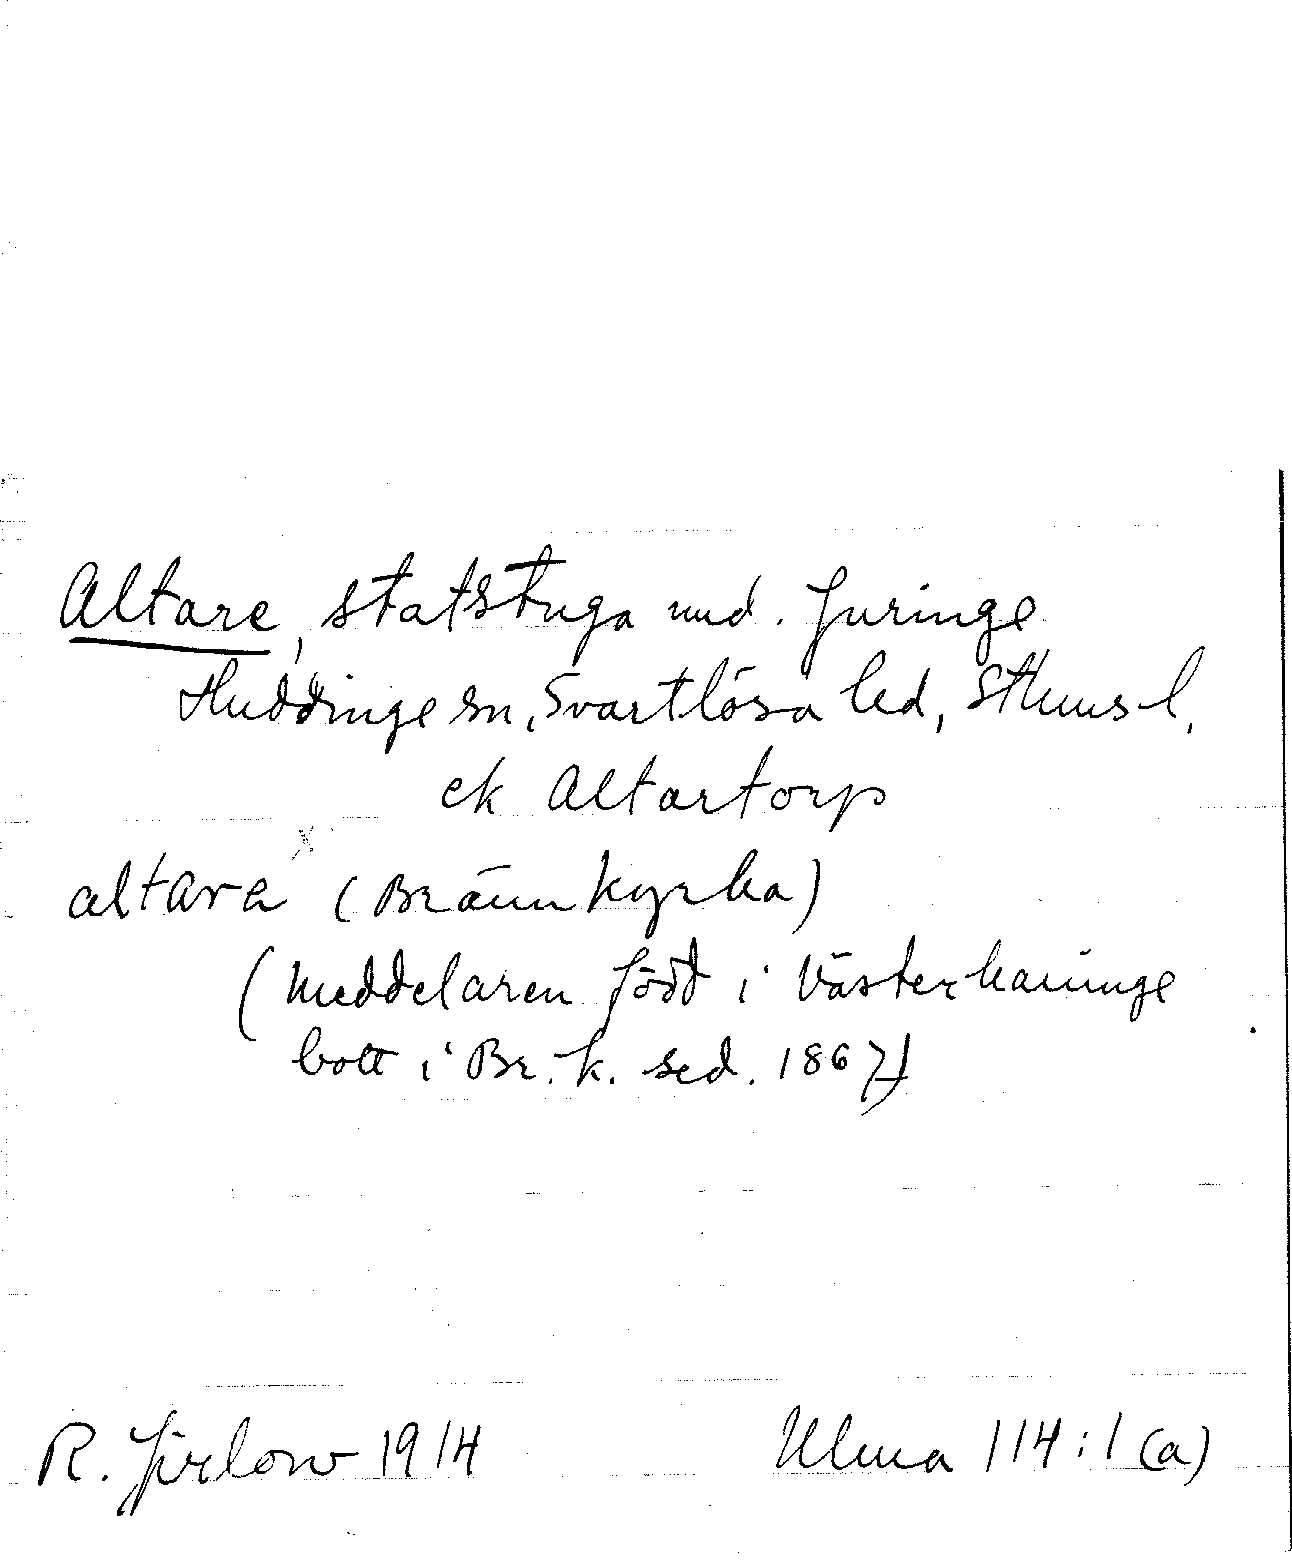 Altare, statstuga und. Juringe
Huddinge sn, Svartlösa hd, Sthms l.
ek Altartorp
altara (Brännkyrka)
(Meddelaren född i Västerhaninge
bott i Br.k. sed. 1867)
R. Jirlow 1914
Ulma 114:1(a)